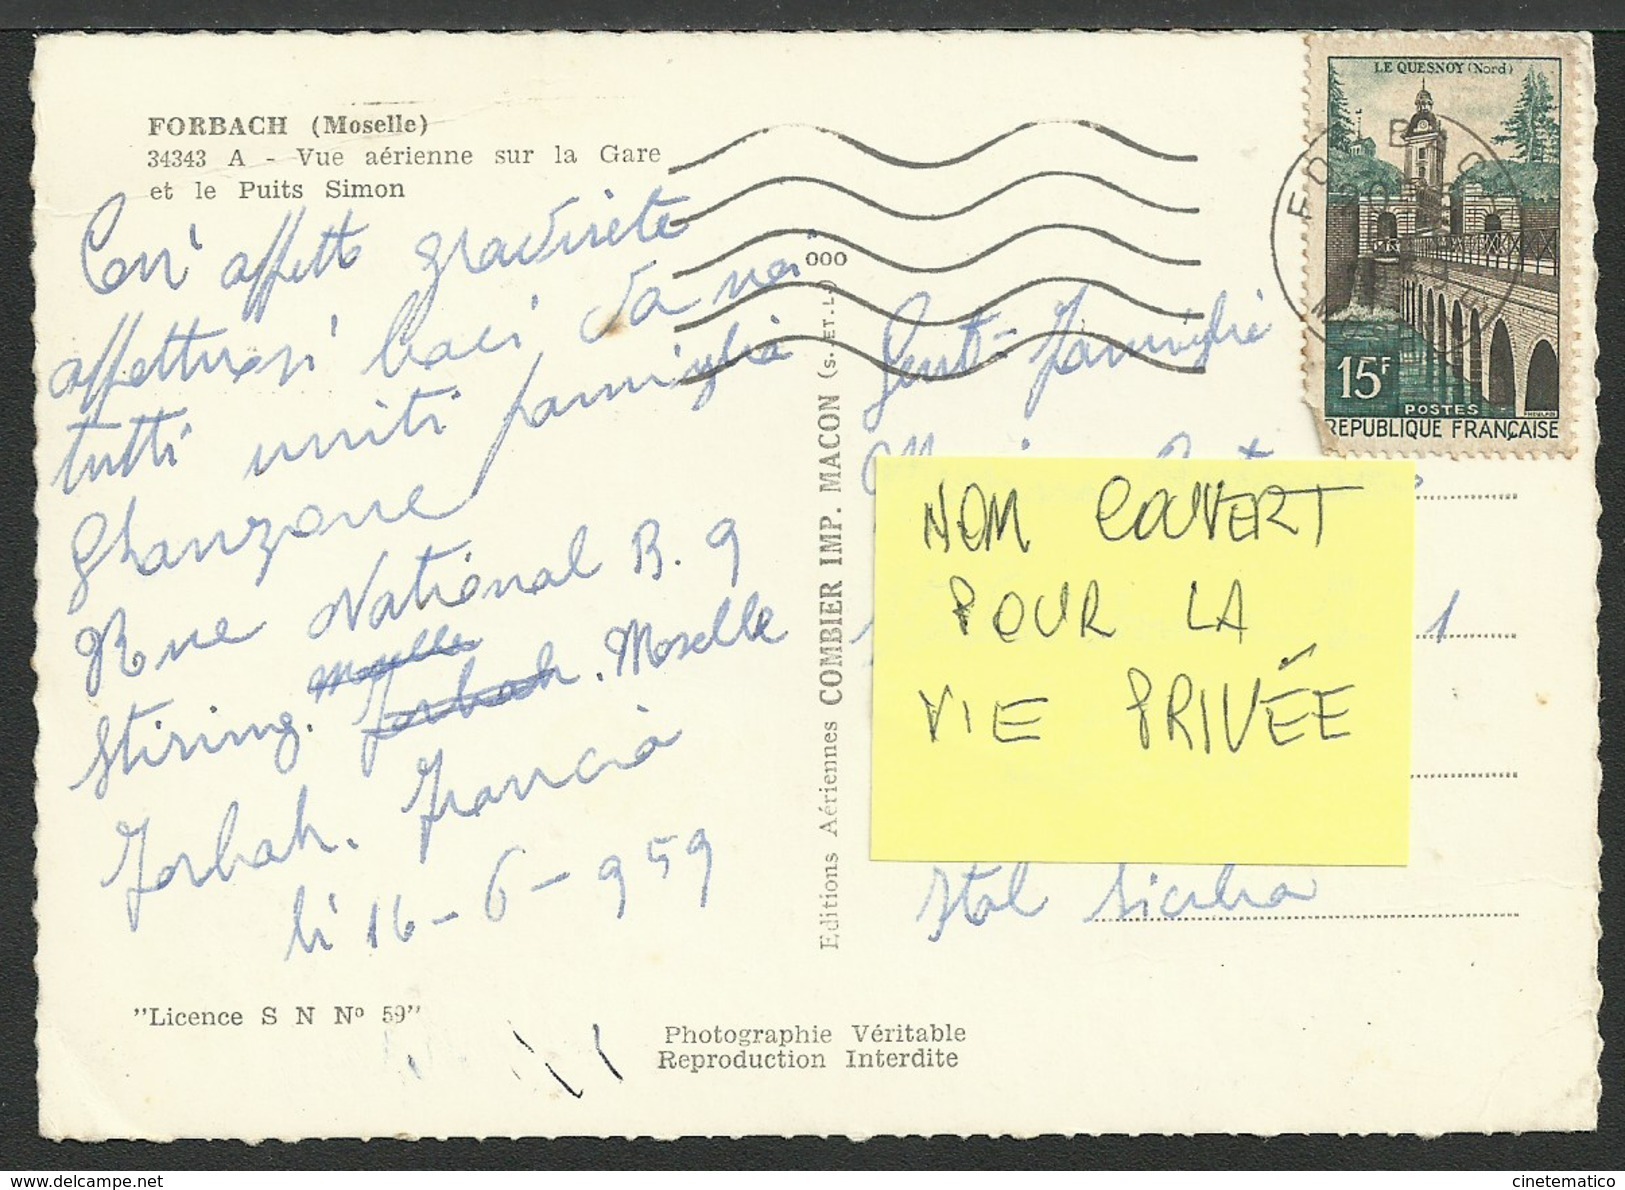 FORBACH (Moselle)
34343 A - Vue aérienne sur la Gare
et le Puits Simon
Con' affetto gradirete
affettuosi baci da noi
tutti uniti famiglia
Ghanzone
Rue National B. 9
Stiring. Moselle Forbah. Moselle
Forbah. Francia
li 16-6-959
"Licence S N Nº 59"
Photographie Véritable
Reproduction Interdite
Editions Aériennes COMBIER IMP. MACON (S.-ET-L.)
000
LE QUESNOY (Nord)
15F
POSTES
REPUBLIQUE FRANÇAISE
FORBACH
Gent- famiglia
NOM COUVERT
POUR LA
VIE PRIVÉE
1
Ital Sicilia
delcampe.net
cinetematico